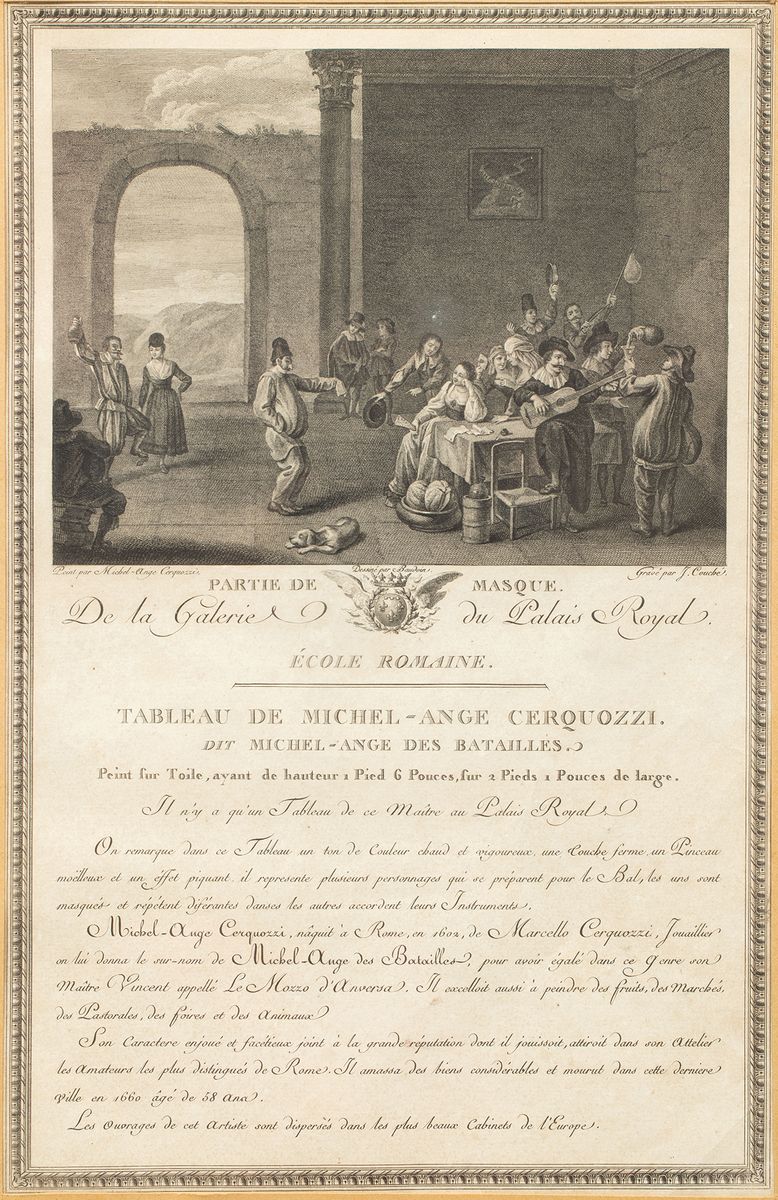 Peint par Michel-Ange Cerquozzi.
Dessiné par Baudoin.
Gravé par J. Couché.
PARTIE DE MASQUE.
De la Galerie du Palais Royal.
ÉCOLE ROMAINE.
TABLEAU DE MICHEL-ANGE CERQUOZZI.
DIT MICHEL-ANGE DES BATAILLES.
Peint sur Toile, ayant de hauteur 1 Pied 6 Pouces, sur 2 Pieds 1 Pouces de large.
Il n'y a qu'un Tableau de ce Maître au Palais Royal.
On remarque dans ce Tableau un ton de Couleur chaud et vigoureux, une Couche ferme, un Pinceau
moëlleux et un éffet piquant. il represente plusieurs personnages qui se préparent pour le Bal, les uns sont
masqués et répétent diférantes danses les autres accordent leurs Instruments.
Michel-Ange Cerquozzi, nâquit à Rome, en 1602, de Marcello Cerquozzi, Jouaillier
on lui donna le sur-nom de Michel-Ange des Batailles, pour avoir égalé dans ce genre son
Maître Vincent appellé Le Mozzo d'Anversa. Il excelloit aussi à peindre des fruits, des Marchés,
des Pastorales, des foires et des Animaux
Son Caractere enjoué et facétieux joint à la grande réputation dont il jouissoit, attiroit dans son Attelier
les Amateurs les plus distingués de Rome. Il amassa des biens considérables et mourut dans cette derniere
Ville en 1660 âgé de 58 Ans.
Les Ouvrages de cet Artiste sont dispersés dans les plus beaux Cabinets de l'Europe.